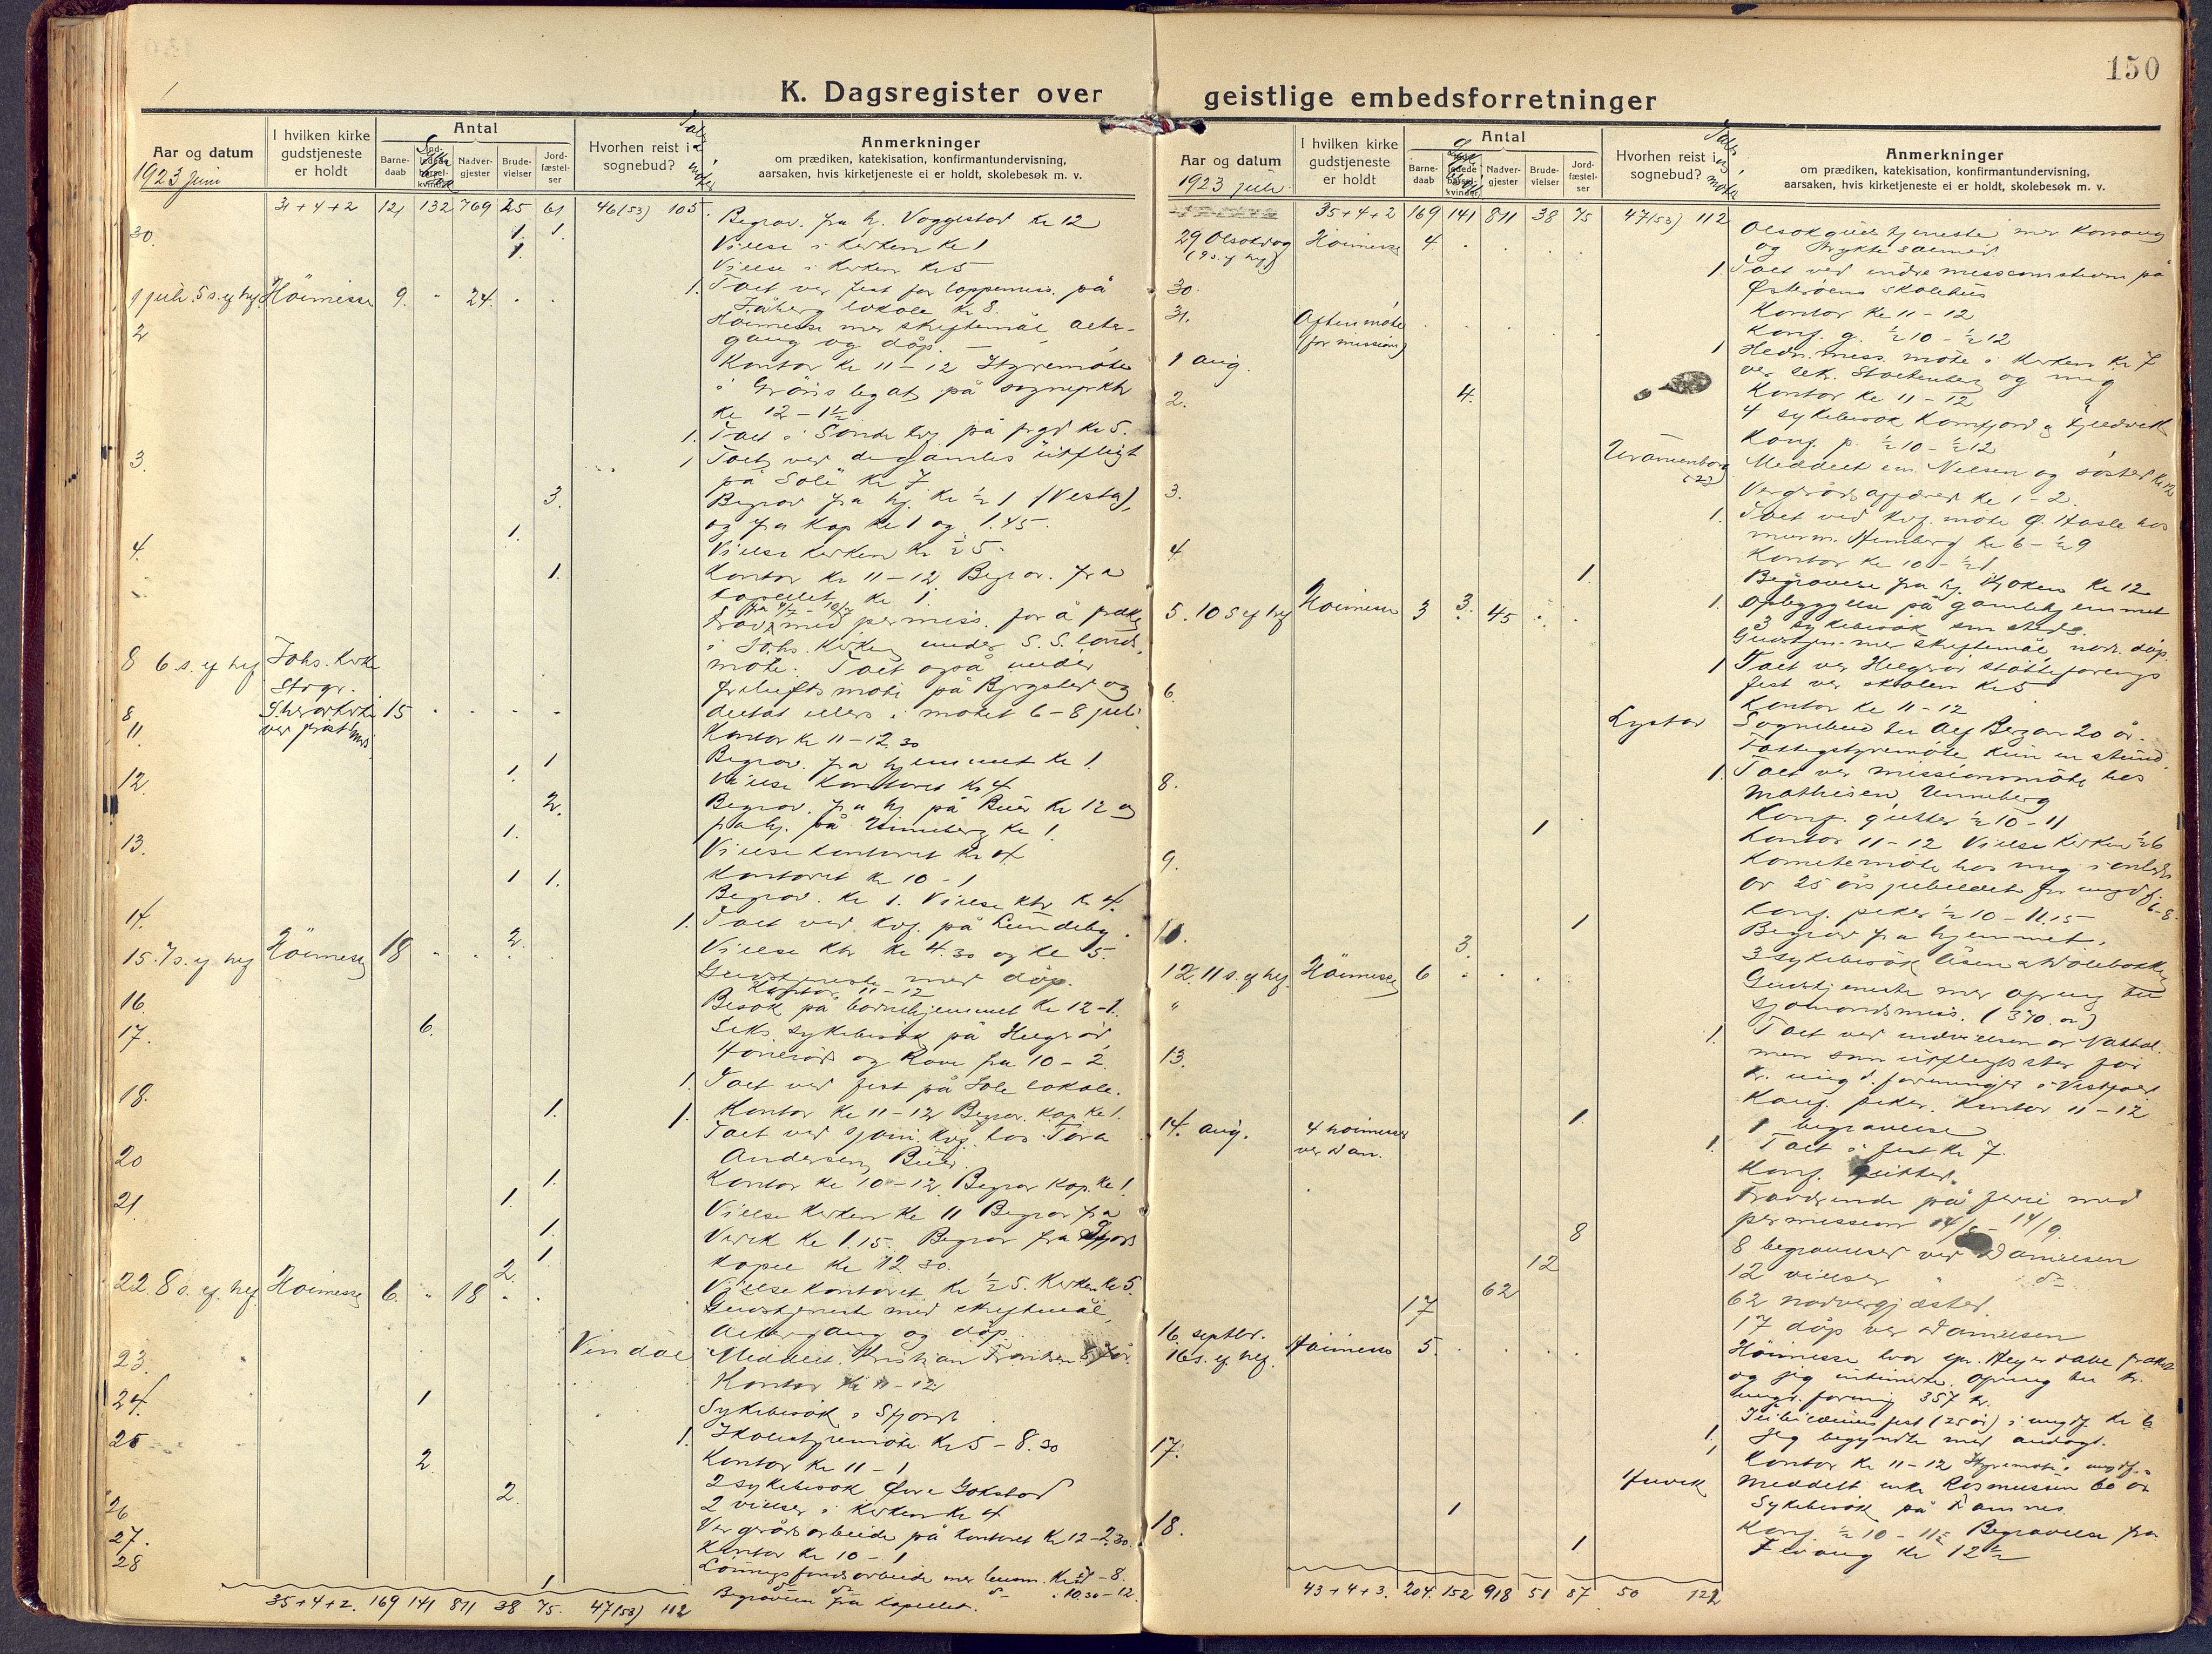 150
K. Dagsregister over
geistlige embedsforretninger
Aar og datum
1923 juni
I hvilken kirke
gudstjeneste
er holdt
Antal
Barne-
daab
Nadver-
gjester
Brude-
vielser
Jord-
fæstel-
ser
Hvorhen reist i
sognebud?
Anmerkninger
om prædiken, katekisation, konfirmantundervisning,
aarsaken, hvis kirketjeneste ei er holdt, skolebesøk m. v.
31+4+2 121 132 769 25 61 46(53) 105
30. 1. 1. Begrav. fra hj. Voggestad kl 12
1. Vielse i kirken kl 1
Vielse i kirken kl 5
1 juli. 5 s. ef hlf. Höimesse 9. " 24. . . 1. Talt ved fest for lappemiss. på
lokale kl 8.
2 Höimesse med skriftemål, alter-
gang og dåp.
Kontor kl 11-12 Styremöte
i Gröns legat på
kl 12-1½
1. Talt i Sande kvf på prgd kl 5.
3. 1 Talt ved de gamles utflugt
på Sole kl 7
3. Begrav fra hj. kl ½1 (Vesta),
og fra kap kl 1 og 1.45.
1. Vielse kirken kl ½5.
4. 1. Kontor kl 11-12 Begrav. fra
kapellet kl 1.
med permiss. for å
8 6 s. ef hlf Johs. kirke i Johs. kirke under S. S. lands
Stvgr. möte. Talt også under
friluftsmöte på Bjergsted og
8 15 . . . . deltat ellers i mötet 6-8 juli
11. Kontor kl 11-12.30
1 Begrav. fra hjemmet kl 1.
12. 1. Vielse kontoret kl 4
2. Begrav. fra hj på Buer kl 12 og
fra hj. på Unneberg kl 1.
13. 1. Vielse kontoret kl 4
Kontoret kl 10-1
1 1. Begrav. kl 1. Vielse ktr kl 4.
14. 1. Talt ved kvf. på Lundeby.
2. Vielse ktr kl 4.30 og kl 5.
15. 7 s. ef hlf Höimesse 18 . . . Gudstjeneste med dåp.
16. Kontor 11-12
Besök på barnehjemmet kl 12-1.
17. 6. Seks sykebesök på Helgerød,
og Rove fra 10-2.
1. Talt ved fest på Sole lokale.
18. 1. 1. Kontor kl 11-12 Begrav. kap kl 1.
Talt ved sjöm. kvf. hos Tora
Andersen, Buer.
20 1. Kontor kl 10-12 Begrav kap. kl 1.
21. 1. Vielse kirken kl 11 Begrav fra
1. Virik kl 1.15. Begrav fra Sfjord
1. kapel kl 12.30.
2. Vielse kontoret kl ½5. Kirken kl 5.
22. 8 s. ef. hlf. Höimesse 6. " 18 " . Gudstjeneste med skriftemål,
altergang og dåp.
23. Vindal Meddelt Kristian
Kontor kl 11-12
24. 1 Sykebesök i Sfjord
25 1. Skolestyremöte kl 5-8.30
Kontor kl 11-1
2 2 sykebesök Övre Gokstad
2. 2 vielser i kirken kl 4
26 Vergerådsarbeide på kontoret kl 12-2.30.
27. Kontor kl 10-1
28 Lönningsfondsarbeide med
1 Begravelse fra kapellet. 10.30-12.
35+4+2. 169 141 811 38 75. 47(53) 112
Aar og datum
1923 juli
I hvilken kirke
gudstjeneste
er holdt
Antal
Barne-
daab
Nadver-
gjester
Brude-
vielser
Jord-
fæstel-
ser
Hvorhen reist i
sognebud?
Anmerkninger
om prædiken, katekisation, konfirmantundervisning,
aarsaken, hvis kirketjeneste ei er holdt, skolebesøk m. v.
35+4+2 169 141 811 38 75 47(53) 112
29 Olsokdag Höimesse 4. . . . Olsokgudstjeneste med korsang
(9 s. ef hlf) og trykte salmer
1. Talt ved indre missionsstevne på
Österöens skolehus
30. Kontor kl 11-12
31. Aftenmöte Konf. g. ½10-½12
(for mission) 1 Hedn. miss. möte i kirken kl 7
ved sekr. Stoltenberg og mig
1 aug. Kontor kl 11-12
2. 4. 4 sykebesök Kamfjord og Fjeldvik
Konf. p. ½10-½12
Uranienborg Meddelt em. Nielsen og söster
3. Vergeråds kl 1-2.
1. Talt ved kvf. möte Ö. Hasle hos
murm. kl 6-½9
4. Kontor kl 10-½1
1. Begravelse fra hj. kl 12
1. Opbyggelse på gamlehjemmet
3 sykebesök sm steds.
5. 10 S ef hlf Höimesse 3 3. 45 . . Gudstjen. med skriftemål, nadv. dåp.
1 Talt ved Helgerød stötteforenings
fest ved skolen kl 5
6. Kontor kl 11-12
Lystad Sognebud hos Alf Berzan 20 år.
Fattigstyremöte, kun en stund.
1. Talt ved missionsmöte hos
Mathisen, Unneberg
8. Konf. gutter ½10-11
1 Kontor 11-12 Vielse kirken ½6
9. Komitemöte hos mig i anledn
av 25 års jubileet for ungd f. 6-8.
Konf. piker ½10-11.15
11. 1 Begrav fra hjemmet.
3. 3 sykebesök Åsen
12. 11 s. ef hlf. Höimesse 6 . . . Gudstjeneste med ofring til
" sjömandsmiss. (370 kr)
1. Talt ved indvielsen av
som utflugtssted for
kr. ungd. foreninger i Vestfold
13. Konf. piker. Kontor 11-12
1. 1 begravelse
1. Talt i fest kl 7.
14. aug. 4 höimesser Konf. gutter.
ved Dan. Fraværende på ferie med
permission 14/8-14/9.
8 8 begravelser ved Danielsen
12 12 vielser " do
62 62 nadvergjæster.
17 17 dåp ved Danielsen
16. septbr. Höimesse 5. . . . Höimesse hvor spr. Meyer talte
16 s. ef hlf. og jeg intimerte. Ofring til kr.
ungd. forening 357 kr.
Jubilæumsfest (25 år) i ungdf. kl 6
1. Jeg begyndte med andagt.
17. 1 Kontor kl 11-12 Styremöte i ungdf.
Juvik Meddelt enke Rasmussen 60 år
1 Sykebesök på Framnes.
18. Konf. ½10-11½ Begravelse fra
1 Fevang kl 12½
43+4+3. 204. 152 918 51 87 50 122